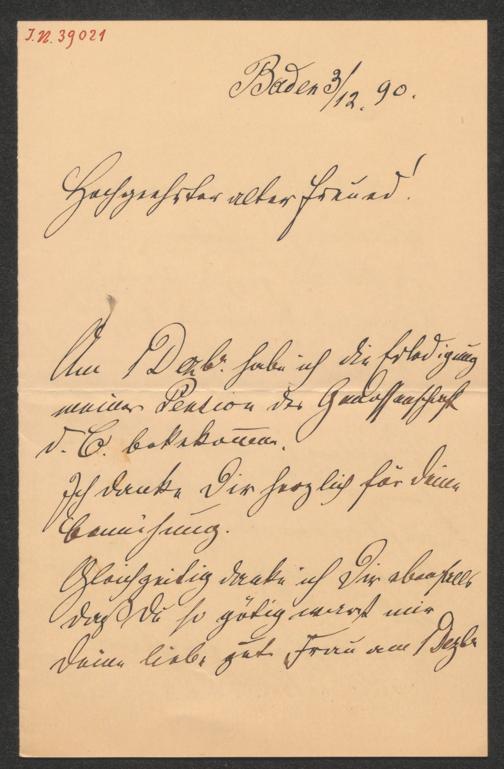 I.N. 39021
Baden 3/12. 90.
Hochgeehrter alter Freund!
Am 1 Dezbr. habe ich die Erledigung
meiner Pension der Genossenschaft
d. B. bekommen.
Ich danke Dir herzlich für Deine
Bemühung.
Gleichzeitig danke ich Dir ebenfalls
daß Du so gütig warst mir
Deine liebe gute Frau am 1 Dezbr